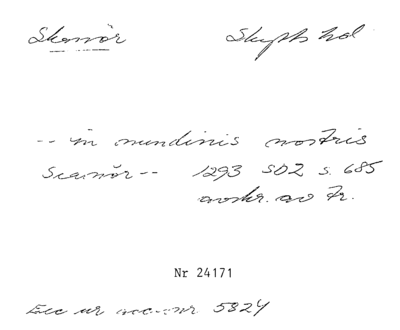 Skanör Skytts hd
-- in nundinis nostris
Scanör -- 1293 SD2 s. 685
avskr. av tr.
Nr 24171
Exc ur acc.-nr. 5324